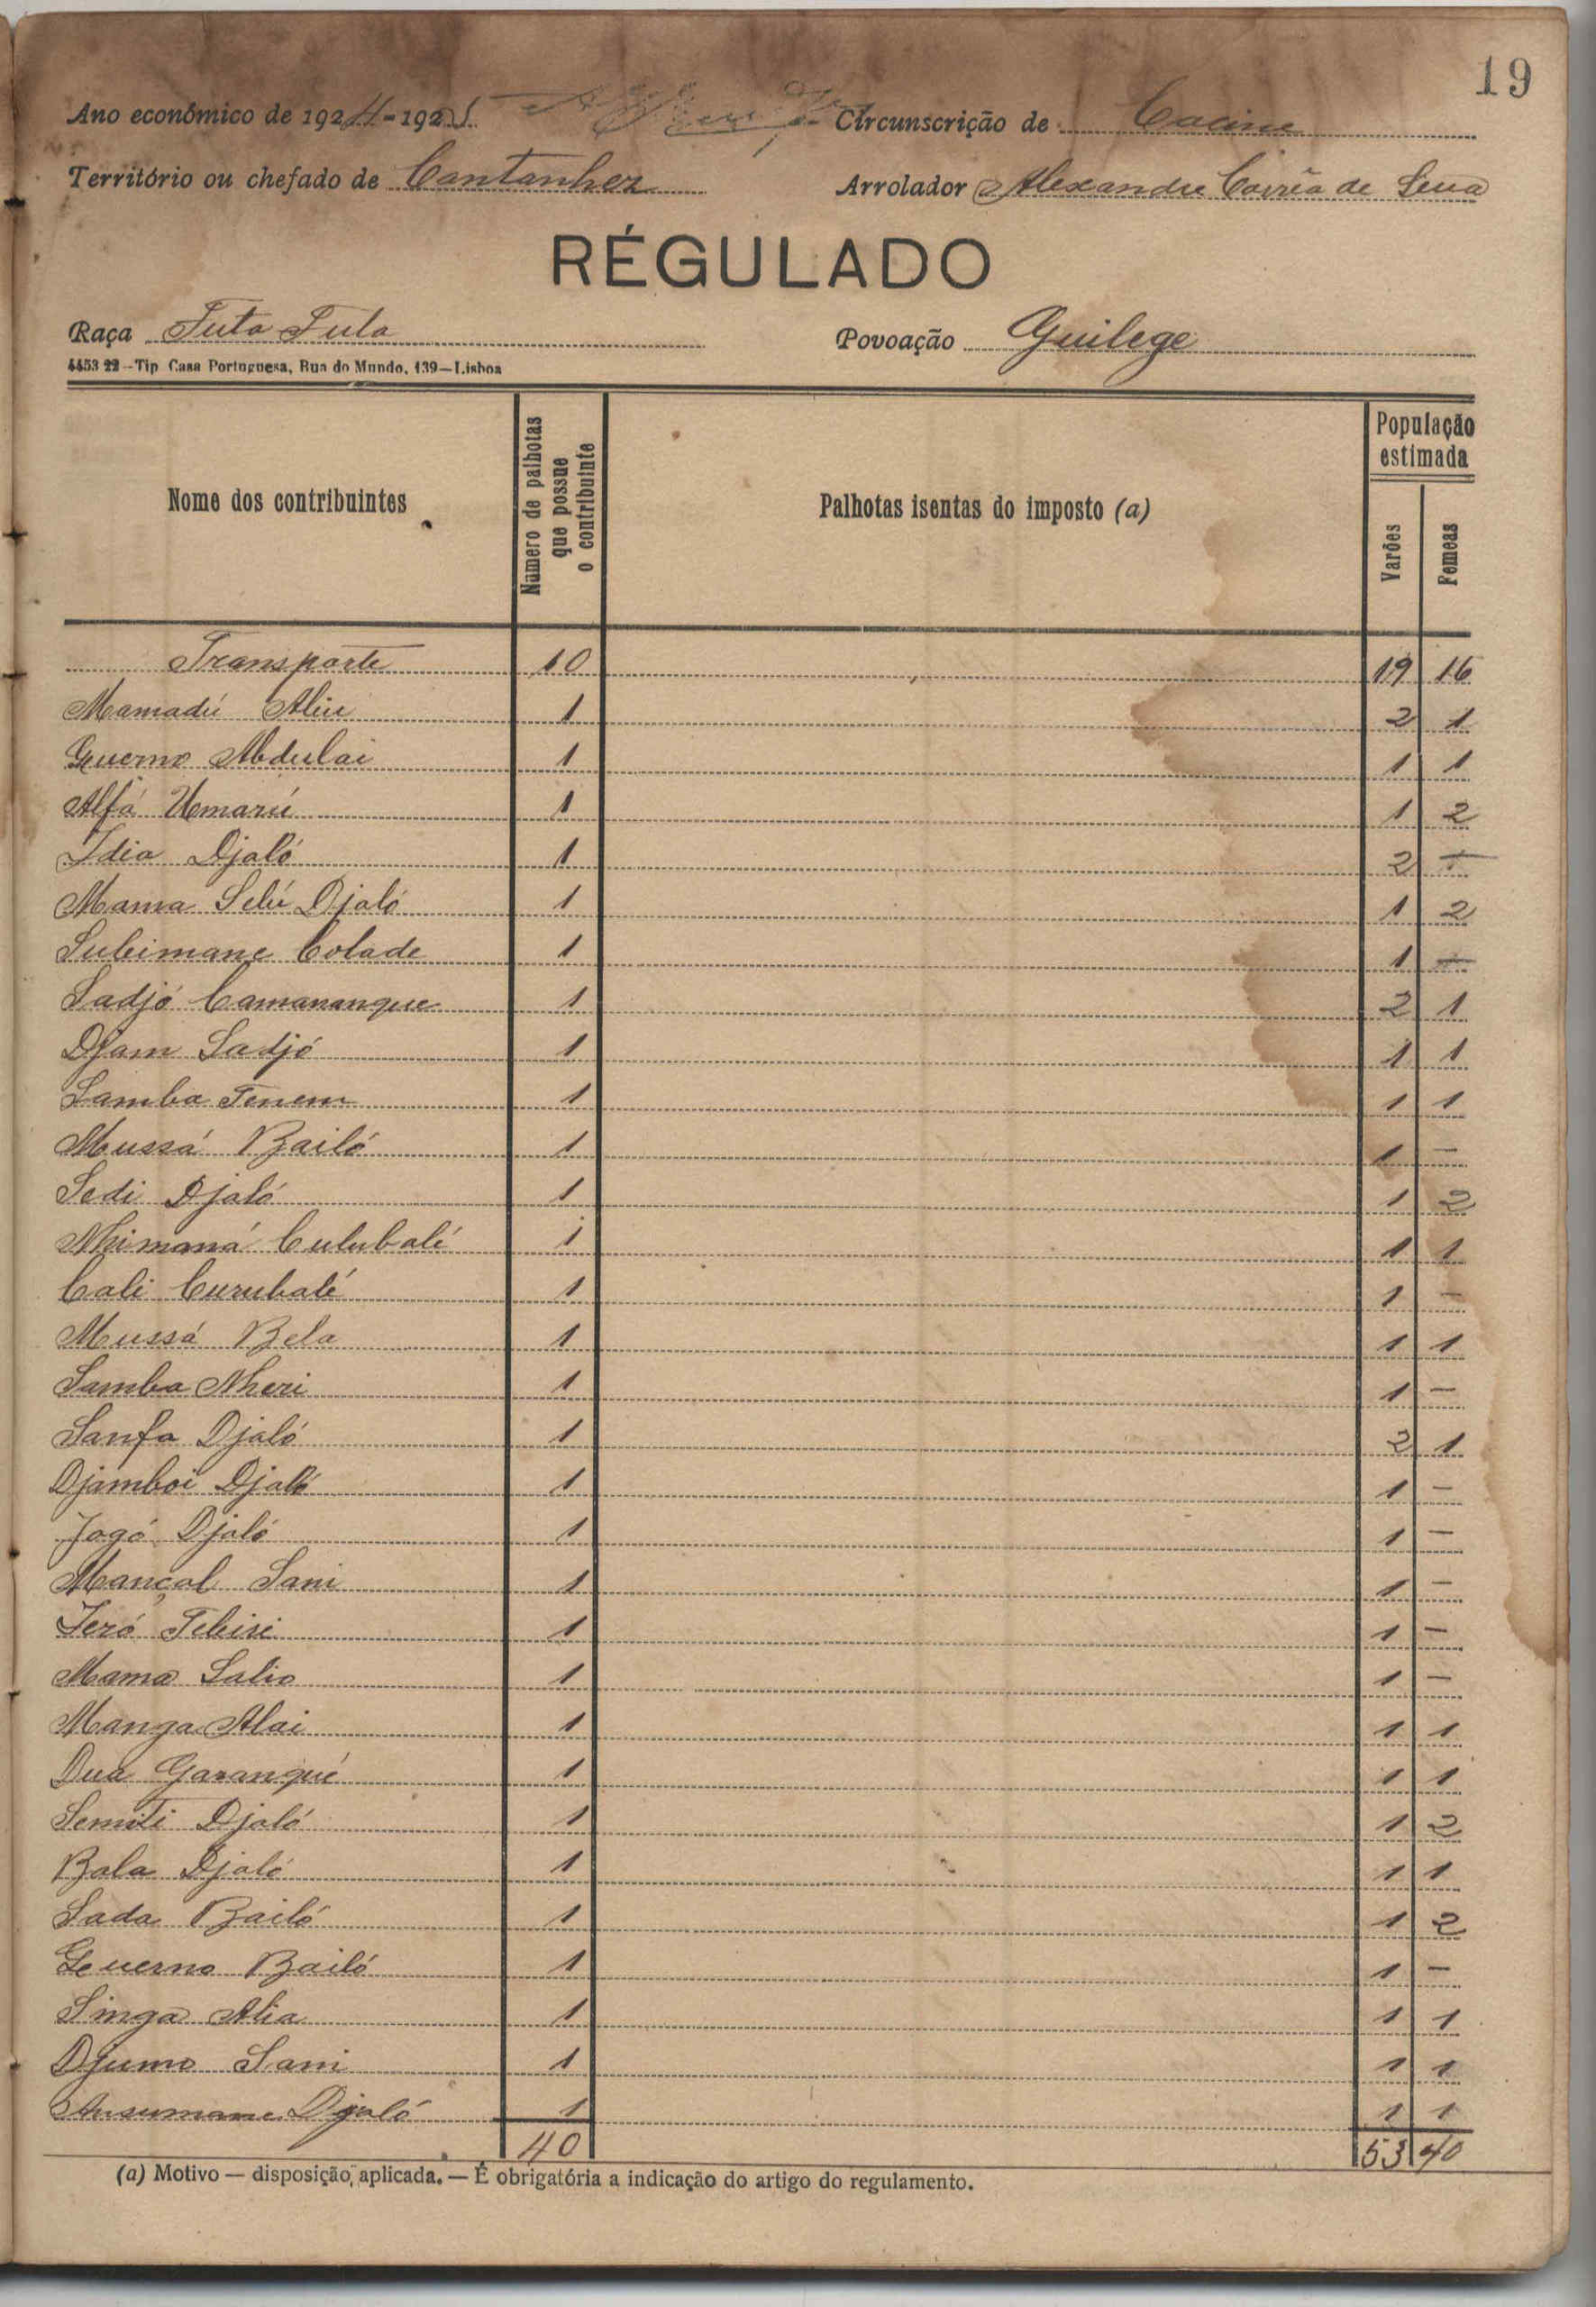 19
Ano económico de 1924-1925 Circunscrição de Cacine
Território ou chefado de Cantanhez Arrolador Alexandre Corrêa de Sena
RÉGULADO
Raça Futa Fula Povoação Guilege
4453 22-Tip Casa Portuguesa, Rua do Mundo, 139-Lisboa
Nome dos contribuintes Número de palhotas que possue o contribuinte Palhotas isentas do imposto (a) População estimada Varões Femeas
Transporte 10 19 16
Mamadú Aliu 1 2 1
Guerno Abdulai 1 1 1
Alfá Umarú 1 1 2
Idia Djaló 1 2 -
Mama Selú Djaló 1 1 2
Suleimane Colade 1 1 -
Sadjó Camananque 1 2 1
Djam Sadjó 1 1 1
Samba Tenem 1 1 1
Mussá Bailó 1 1 -
Sedi Djaló 1 1 2
Nhimaná Culubalé 1 1 1
Cali Curubalé 1 1 -
Mussá Bela 1 1 1
Samba Nheri 1 1 -
Sanfa Djaló 1 2 1
Djamboi Djaló 1 1 -
Jogó Djaló 1 1 -
Mançal Sani 1 1 -
Ieró Telisi 1 1 -
Mama Salio 1 1 -
Manga Alai 1 1 1
Dua Garanqué 1 1 1
Semiti Djaló 1 1 2
Bala Djaló 1 1 1
Sada Bailó 1 1 2
Guerno Bailó 1 1 -
Singa Alia 1 1 1
Djumo Sani 1 1 1
Ansumane Djaló 1 1 1
40 53 40
(a) Motivo — disposição, aplicada. — É obrigatória a indicação do artigo do regulamento.